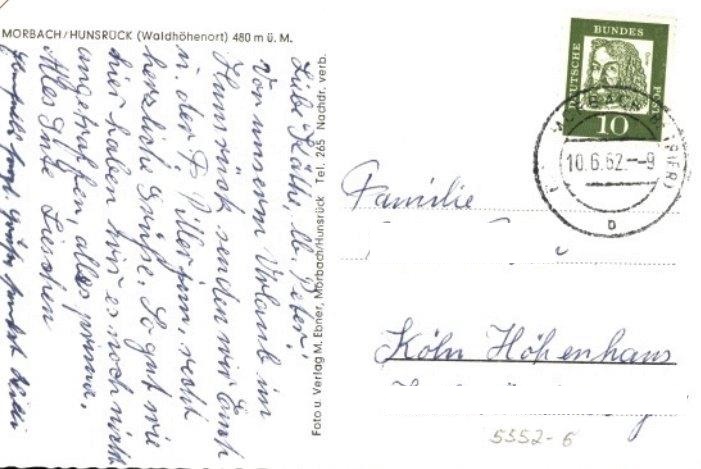 MORBACH/HUNSRÜCK (Waldhöhenort) 480 m ü. M.
Liebe Käthe, lb. Peter!
Von unserm Urlaub im
Hunsrück senden wir Euch
u. der F. recht
herzliche Grüße. So gut wie
hier haben wir es noch nicht
angetroffen, alles prima.
Alles Gute Lieschen
Grüße
Foto u. Verlag M. Ebner, Morbach/Hunsrück Tel. 265 Nachdr. verb.
DEUTSCHE BUNDES POST
10
10.6.62.-9
b
Familie
Köln Höhenhaus
5352-6